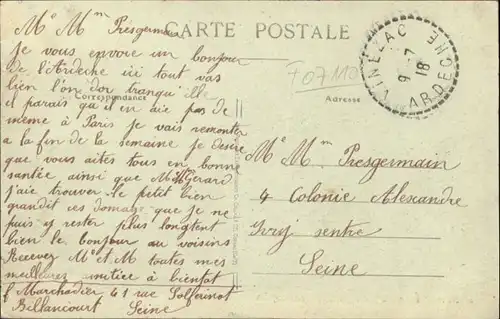 CARTE POSTALE
Mr Mm Presgermain
je vous envoie un bonjour
de l'Ardeche ici tout vas
bien l'on dor tranquille
Correspondance
il parais qu il en aie pas de
même à Paris je vais remonter
a la fin de la semaine je desire
que vous aites tous en bonne
santée ainsi que Mlle Gérard
j'aie trouver le petit bien
grandit ces domage que je ne
puis y rester plus longtent
bien le bonjour au voisins
Recevez Mr et M toutes mes
meilleures amitiée à bientot
Marchadier 41 rue Solferinot
Billancourt Seine
F 07110
Adresse
VINEZAC
9-7
18
ARDECHE
Me Mm Presgermain
4 Colonie Alexandre
Ivry sentre
Seine